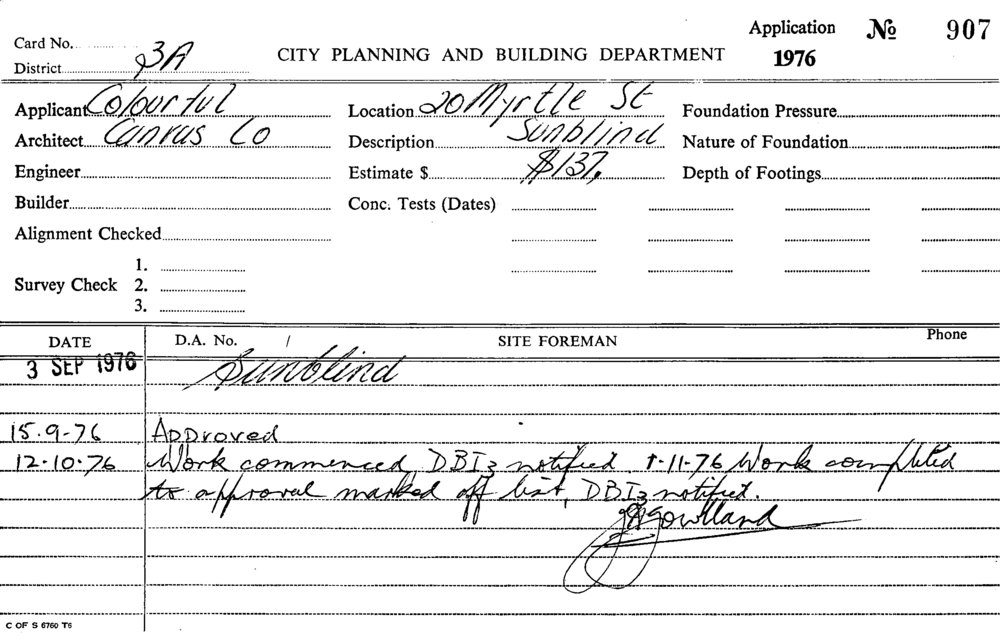 Application № 907
Card No.
District 3A
CITY PLANNING AND BUILDING DEPARTMENT
1976
Applicant Colourful Location 20 Myrtle St Foundation Pressure
Architect Canvas Co Description Sunblind Nature of Foundation
Engineer Estimate $ $137. Depth of Footings
Builder Conc. Tests (Dates)
Alignment Checked
1.
Survey Check 2.
3.
DATE D.A. No. / SITE FOREMAN Phone
3 SEP 1976 Sunblind
15.9-76 Approved
12.10.76 Work commenced, DBI3 notified, 1-11-76 Work completed
to approval marked off list, DBI3 notified.
Gowlland
C OF S 6760 T6